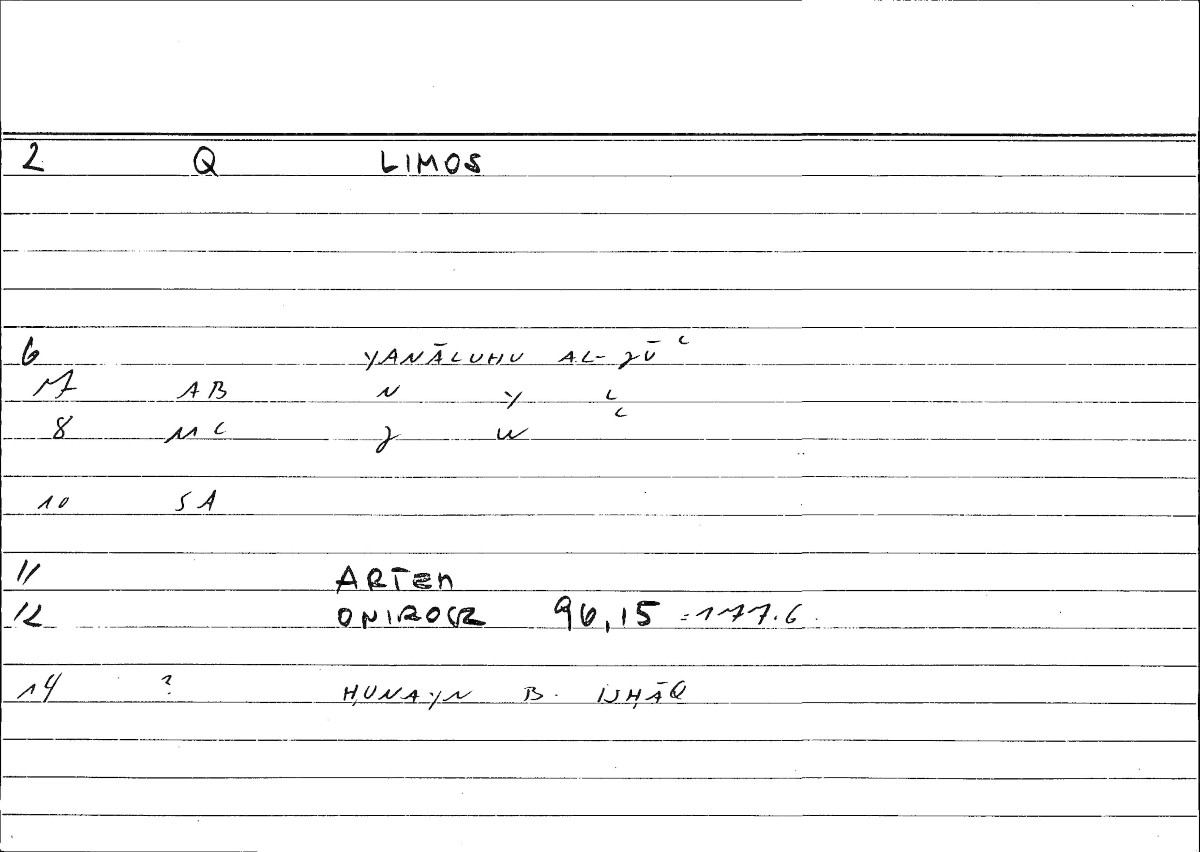 2 Q LIMOS
6 YANĀLUHU AL-JŪʿ
7 AB N Y L
8 MC J W ʿ
10 SA
11 ARTEM
12 ONIROCR 96,15 =177.6
14 ? ḤUNAYN B. ISḤĀQ